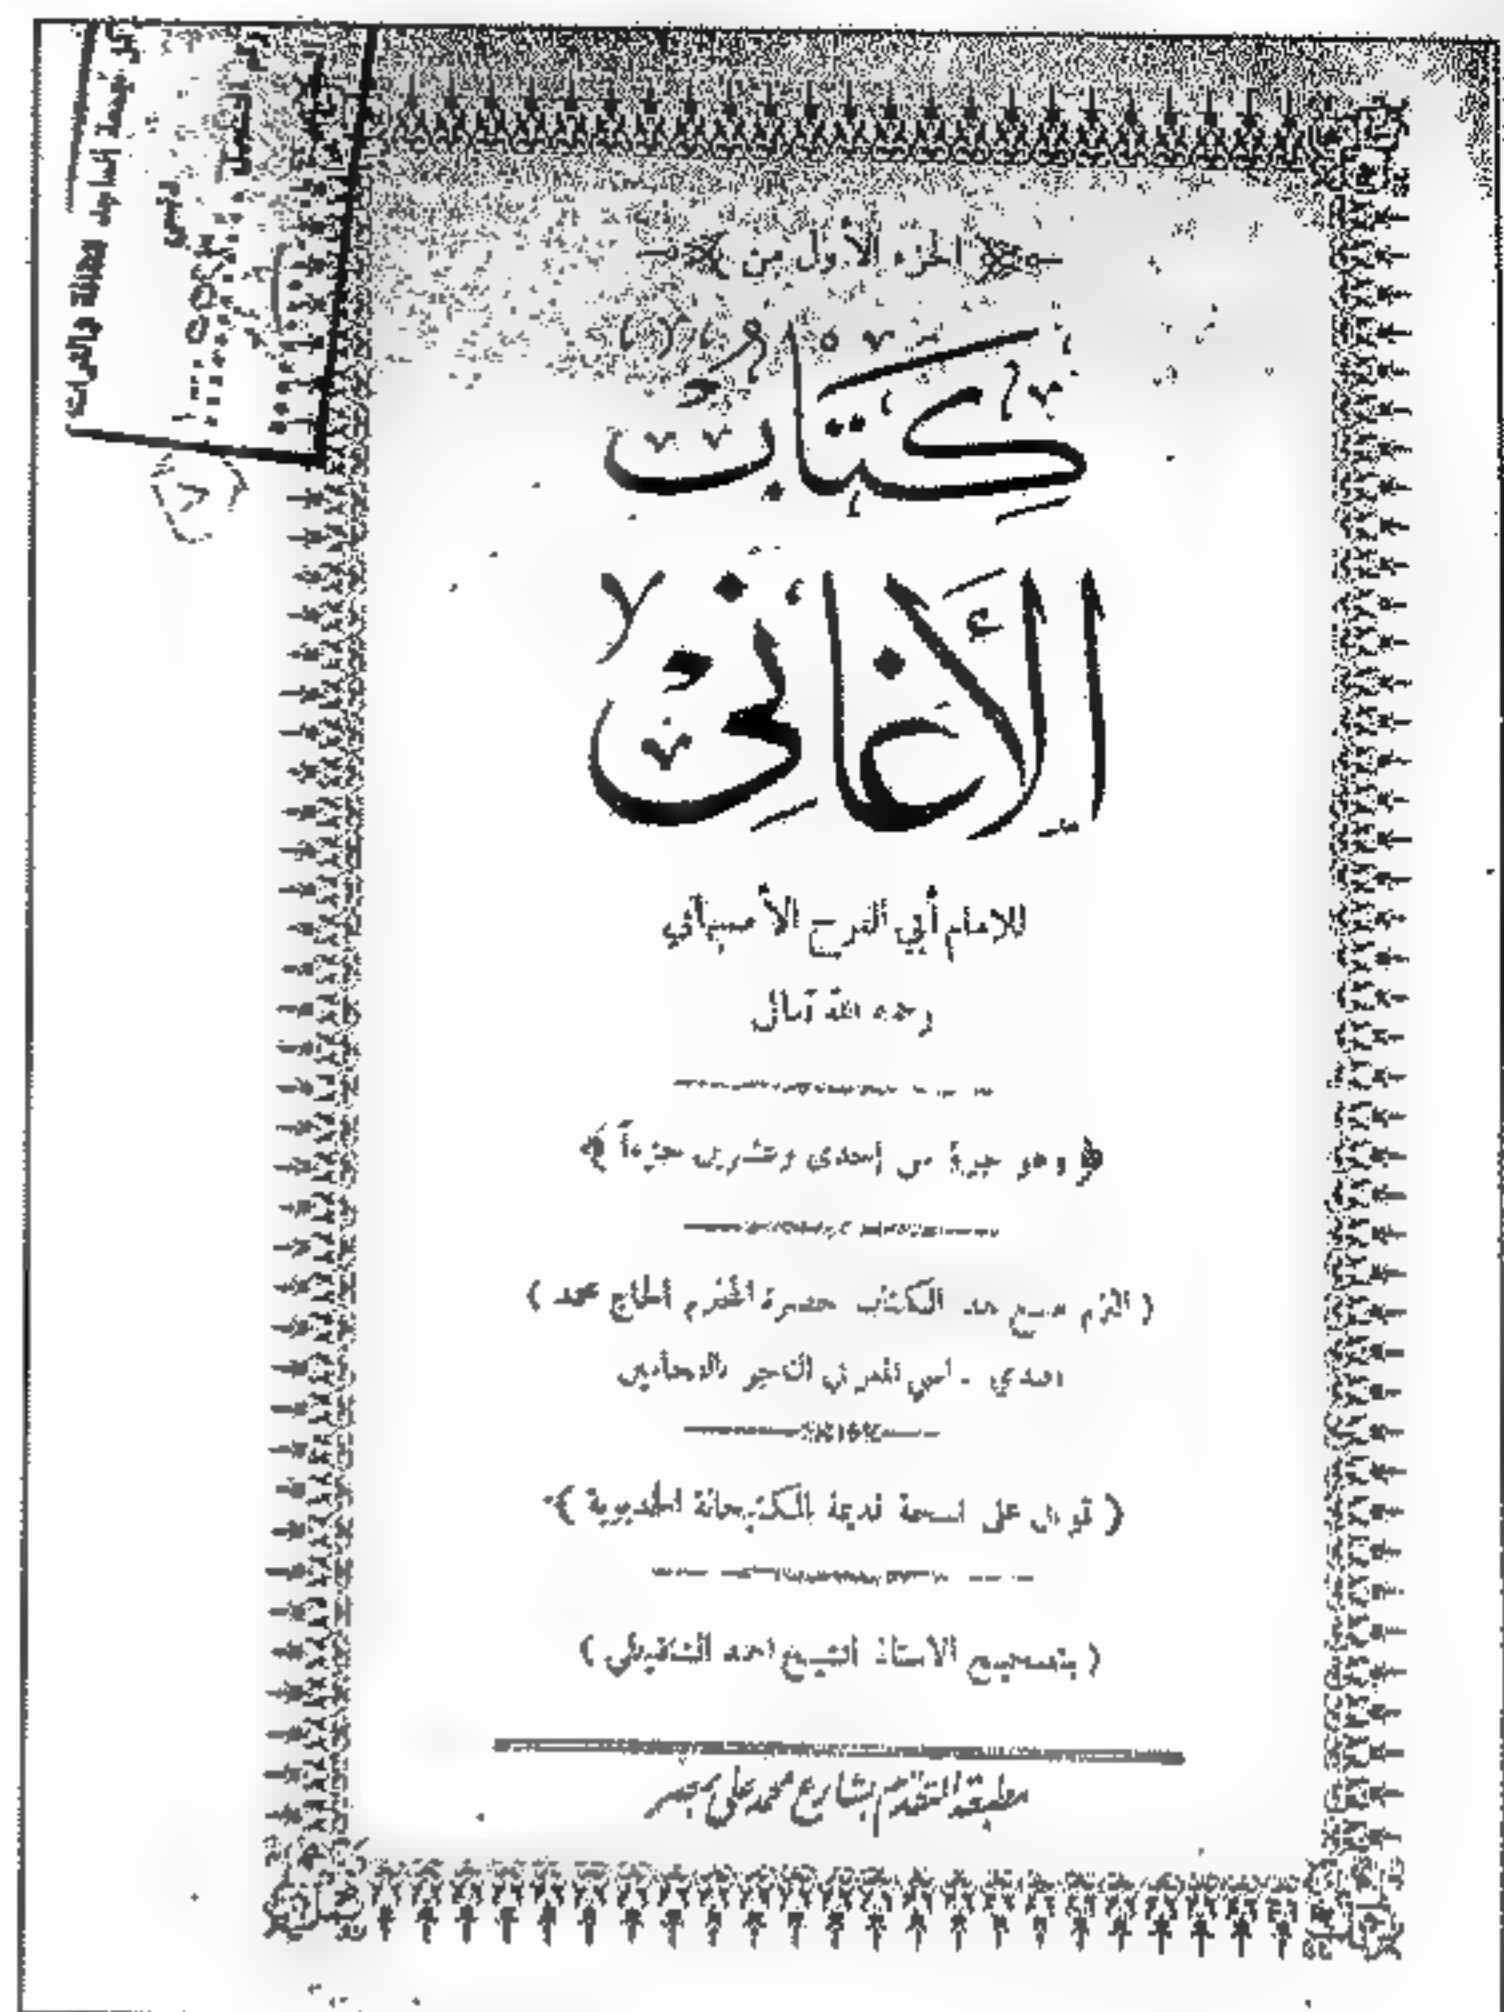 الجزء الأول من
كِتَابُ
الأَغَانِيْ
للامام أبي الفرج الأصبهاني
رحمه الله تعالى
﴿ وهو من إحدى وعشرين جزءاً ﴾
( التزم طبع هذا الكتاب حضرة المحترم الحاج محمد )
افندي ساسي المغربي التاجر بالفحامين
( قوبل على نسخة قديمة بالكتبخانة الخديوية )
( بتصحيح الاستاذ الشيخ احمد الشنقيطي )
مطبعة التقدم بشارع محمد علي بمصر
مركز جمعة الماجد للثقافة والتراث
دبي